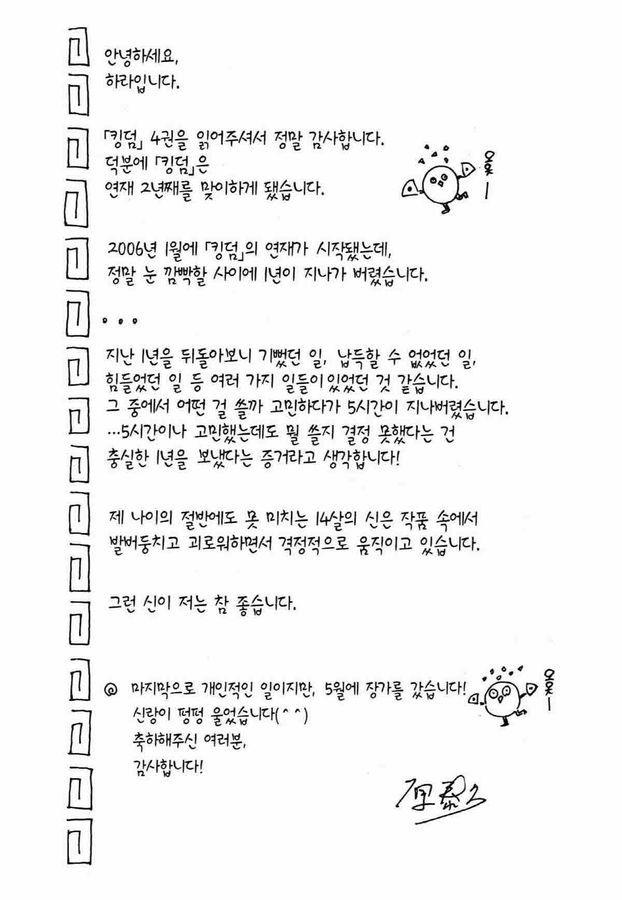 안녕하세요,
하라입니다.
「킹덤」 4권을 읽어주셔서 정말 감사합니다.
덕분에 「킹덤」은
연재 2년째를 맞이하게 됐습니다.
오오ー
2006년 1월에 「킹덤」의 연재가 시작됐는데,
정말 눈 깜빡할 사이에 1년이 지나가 버렸습니다.
...
지난 1년을 뒤돌아보니 기뻤던 일, 납득할 수 없었던 일,
힘들었던 일 등 여러 가지 일들이 있었던 것 같습니다.
그 중에서 어떤 걸 쓸까 고민하다가 5시간이 지나버렸습니다.
...5시간이나 고민했는데도 뭘 쓸지 결정 못했다는 건
충실한 1년을 보냈다는 증거라고 생각합니다!
제 나이의 절반에도 못 미치는 14살의 신은 작품 속에서
발버둥치고 괴로워하면서 격정적으로 움직이고 있습니다.
그런 신이 저는 참 좋습니다.
@ 마지막으로 개인적인 일이지만, 5월에 장가를 갔습니다!
신랑이 펑펑 울었습니다(^^)
축하해주신 여러분,
감사합니다!
오오ー
原泰久